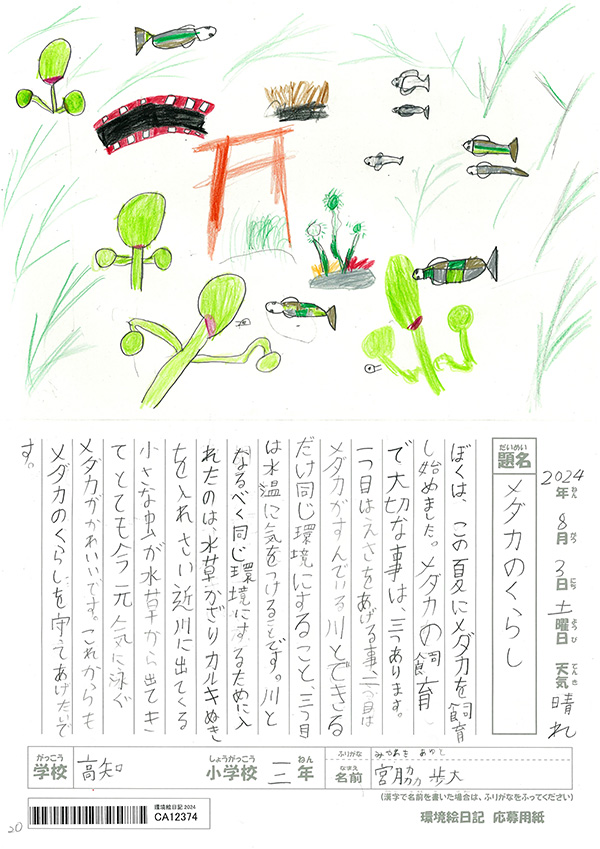 2024年ねん 8月がつ 3日にち 土曜日ようび 天気てんき 晴れ
題名だいめい メダカのくらし
ぼくは、この夏にメダカを飼育
し始めました。メダカの飼育
で大切な事は、三つあります。
一つ目はえさをあげる事、二つ目は
メダカがすんでいる川とできる
だけ同じ環境にすること、三つ目
は水温に気をつけることです。川と
なるべく同じ環境にするために入
れたのは、水草かざりカルキぬき
を入れ、さい近川に出てくる
小さな虫が水草から出てき
てとても今元気に泳ぐ
メダカがかわいいです。これからも
メダカのくらしを守てあげたいで
す。
学校がっこう 高知 小学校しょうがっこう 三年ねん
ふりがな みやわき あゆと
名前なまえ 宮脇 歩大
(漢字で名前を書いた場合は、ふりがなをふってください)
環境絵日記 2024
CA12374
環境絵日記 応募用紙
20